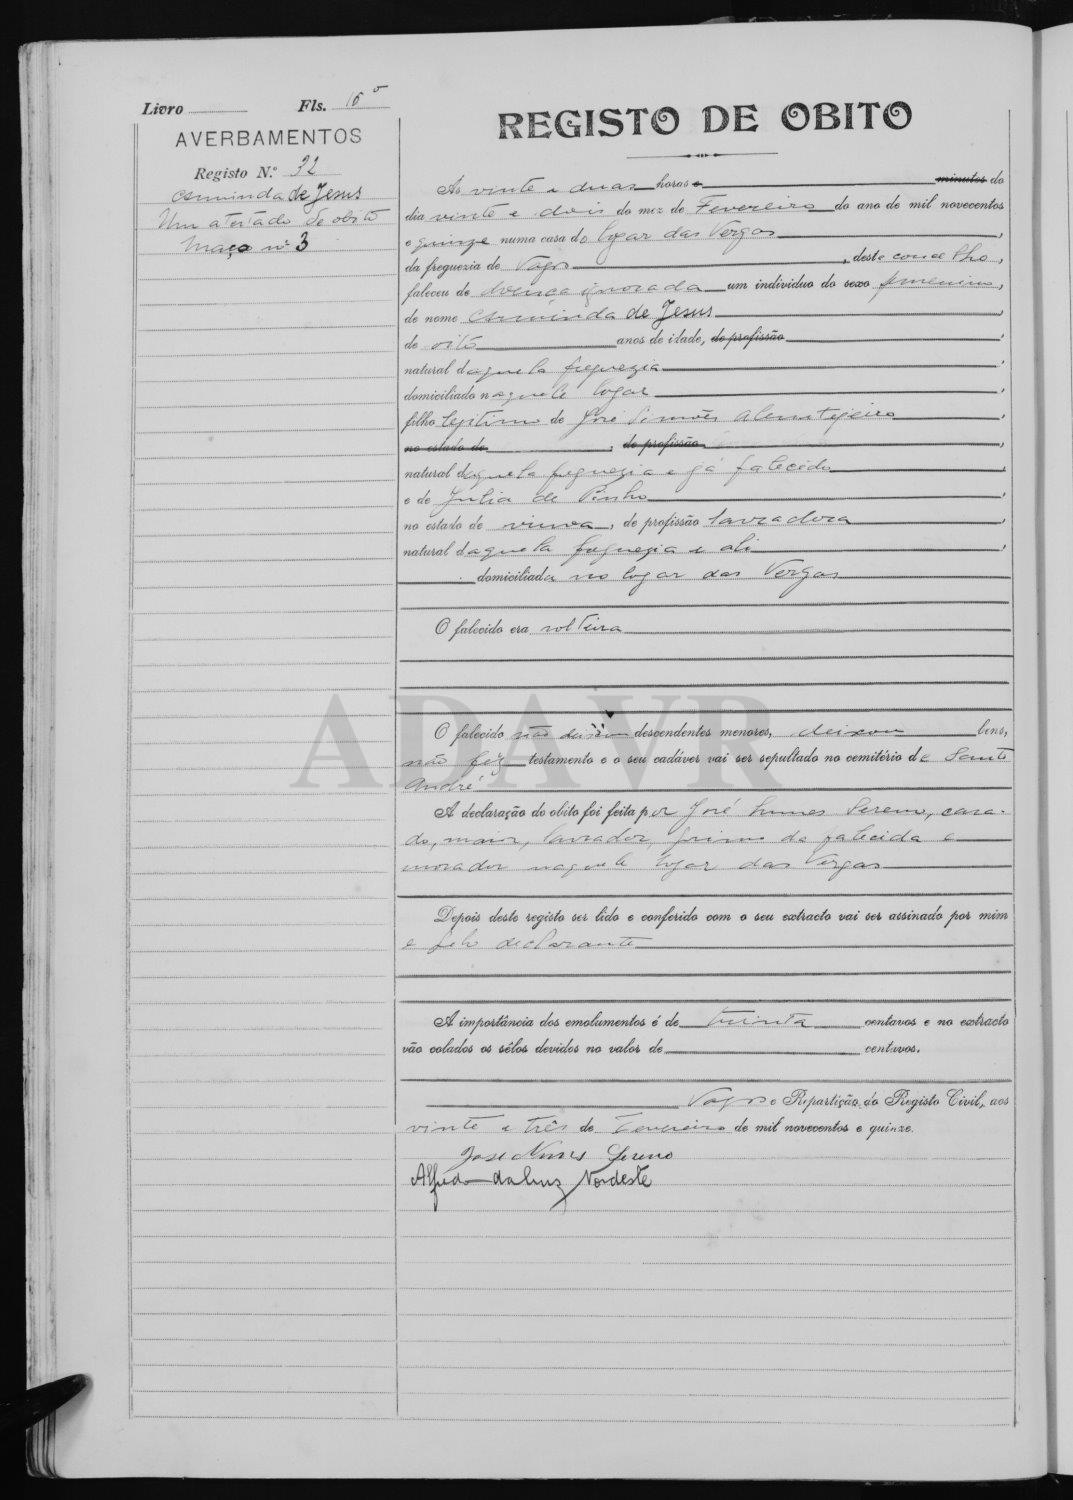 Livro Fls. 16 v
REGISTO DE OBITO
AVERBAMENTOS
Registo N.º 32
de Jesus
Um atestado de obito
Maço nº 3
Ás vinte e duas horas e minutos do
dia vinte e dois do mez de Fevereiro do ano de mil novecentos
e quinze numa casa do logar das Vergas,
da freguezia de Vagos, deste concelho,
faleceu de doença ignorada um individuo do sexo femenino,
de nome de Jesus,
de oito anos de idade, de profissão,
natural daquela freguezia,
domiciliado naquele logar,
filho legitimo de José Simões Alemtejeiro,
no estado de, de profissão,
natural daquela freguezia e já falecido,
e de Julia de Pinho,
no estado de viuva, de profissão lavradora,
natural daquela freguezia e ali,
domiciliada no logar das Vergas
O falecido era solteira
ADAVR
O falecido não deixou descendentes menores, deixou bens,
não fez testamento e o seu cadáver vai ser sepultado no cemitério de Santo
André
A declaração do obito foi feita por José Nunes Sereno, casa-
do, maior, lavrador, primo da falecida e
morador naquele logar das Vergas
Depois deste registo ser lido e conferido com o seu extracto vai ser assinado por mim
e pelo declarante
A importância dos emolumentos é de trinta centavos e no extracto
vão colados os sêlos devidos no valor de centavos.
Vagos e Repartição do Registo Civil, aos
vinte e três de Fevereiro de mil novecentos e quinze.
José Nunes Sereno
Alfredo da Luz Nordeste